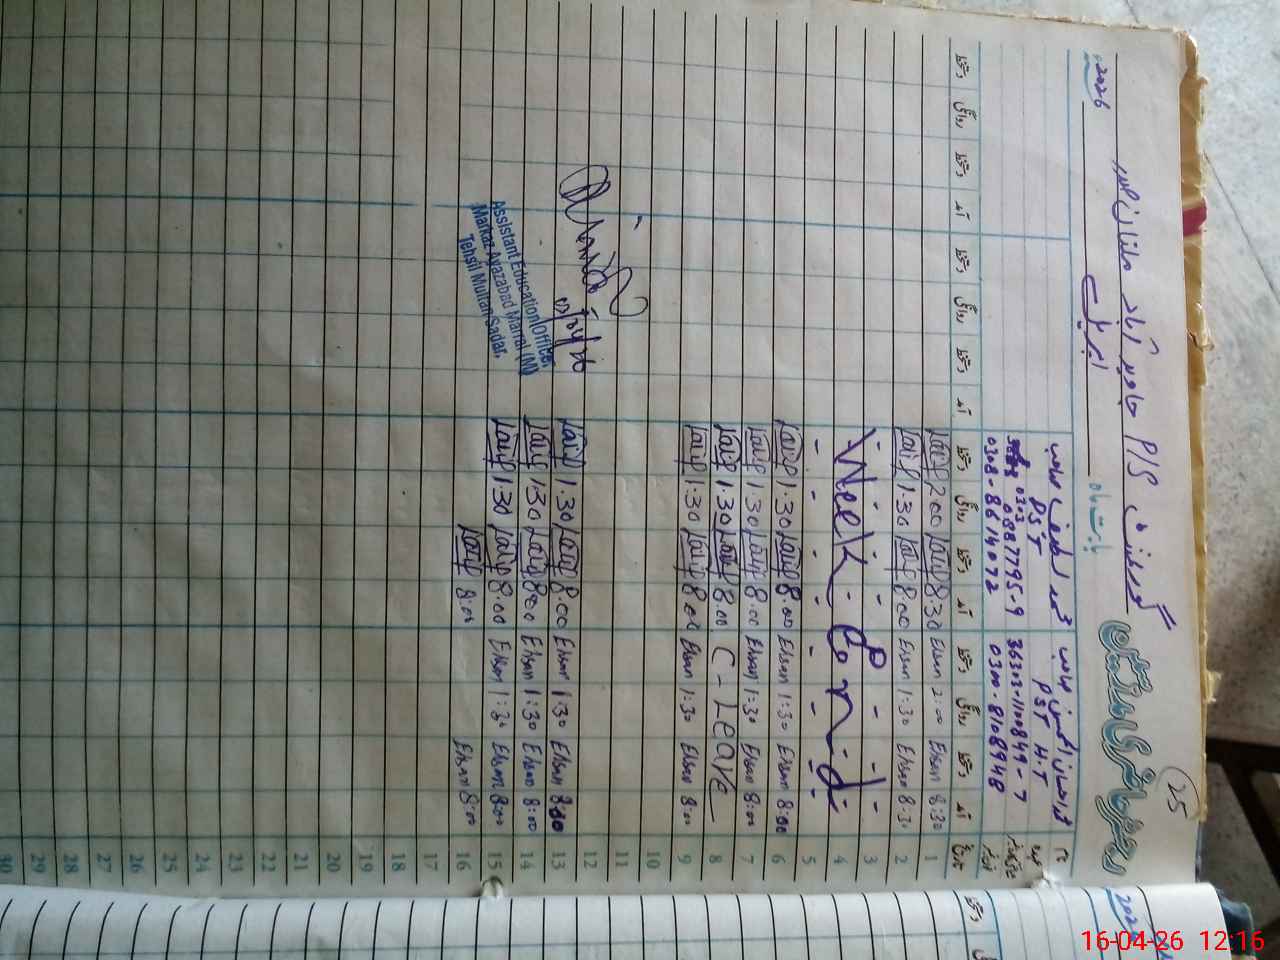 25
رجسٹر حاضری مدرسین
گورنمنٹ P/S جاوید آباد ملتان صدر
بابت ماہ اپریل 2026
نام
عہدہ
تاریخ
PST H.T
36303-1100849-7
0300-8108948
محمد لطیف صاحب
PST
0308-8614072
آمد دستخط روانگی دستخط آمد دستخط روانگی دستخط آمد دستخط روانگی دستخط آمد دستخط روانگی دستخط
1 8:30 Ehsan 2:00 Ehsan 8:30 Latif 2:00 Latif
2 8:30 Ehsan 1:30 Ehsan 8:00 Latif 1:30 Latif
3
4 Week End
5
6 8:00 Ehsan 1:30 Ehsan 8:00 Latif 1:30 Latif
7 8:00 Ehsan 1:30 Ehsan 8:00 Latif 1:30 Latif
8 C-Leave 8:00 Latif 1:30 Latif
9 8:00 Ehsan 1:30 Ehsan 8:00 Latif 1:30 Latif
10
11
12
13 8:00 Ehsan 1:30 Ehsan 8:00 Latif 1:30 Latif
14 8:00 Ehsan 1:30 Ehsan 8:00 Latif 1:30 Latif
15 8:00 Ehsan 1:30 Ehsan 8:00 Latif 1:30 Latif
16 8:00 Ehsan 8:00 Latif
17
18
19
20
21
22
23
24
25
26
27
28
29
30
Assistant Education Officer,
Markaz Ayazabad Marral (M)
Tehsil Multan Sadar,
16-04-26 12:16